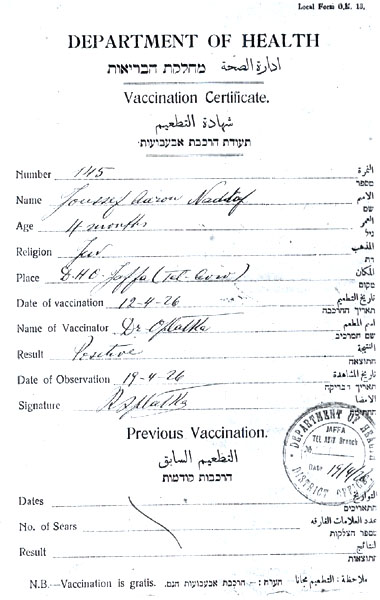 Local Form G.K. 13.
DEPARTMENT OF HEALTH
ادارة الصحة מחלקת הבריאות
Vaccination Certificate.
شهادة التطعيم
תעודת הרכבת אבעבועות
Number 145 النمرة
מספר
Name Joussef Aaron الاسم
שם
Age 4 months العمر
גיל
Religion Jew المذهب
דת
Place D.H.O. Jaffa (Tel-Aviv) المكان
מקום
Date of vaccination 12-4-26 تاريخ التطعيم
תאריך ההרכבה
Name of Vaccinator Dr اسم المطعم
שם המרכיב
Result Positive النتيجة
התוצאה
Date of Observation 19-4-26 تاريخ المشاهدة
תאריך הבדיקה
Signature الامضا
החתימה
Previous Vaccination.
التطعيم السابق
הרכבות קודמות
DEPARTMENT OF HEALTH
JAFFA
TEL AVIV Branch
Date 19/4/26
DISTRICT OFFICE
Dates التواريخ
התאריכים
No. of Scars عدد العلامات الفارقة
מספר הצלקות
Result النتائج
התוצאות
N.B.—Vaccination is gratis. הערה: הרכבת אבעבועות חנם. ملاحظة: التطعيم مجانا